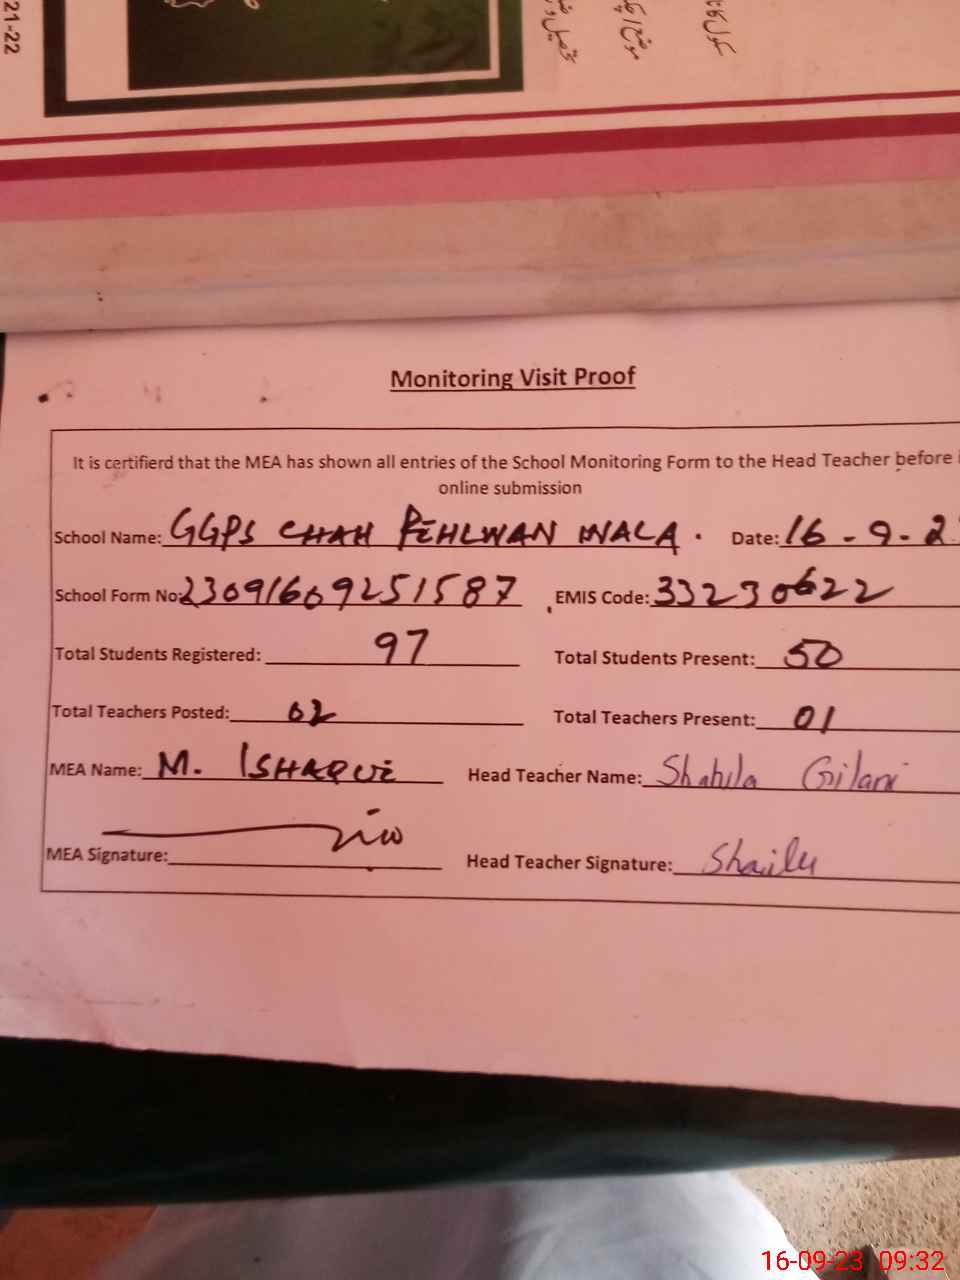 21-22
Monitoring Visit Proof
It is certifierd that the MEA has shown all entries of the School Monitoring Form to the Head Teacher before
online submission
School Name: GGPS CHAH PEHLWAN WALA. Date: 16-9-2
School Form No: 23091609251587 EMIS Code: 33230622
Total Students Registered: 97 Total Students Present: 50
Total Teachers Posted: 02 Total Teachers Present: 01
MEA Name: M. ISHAQUE Head Teacher Name: Shahila Gilani
MEA Signature: Head Teacher Signature: Shaila
16-09-23 09:32